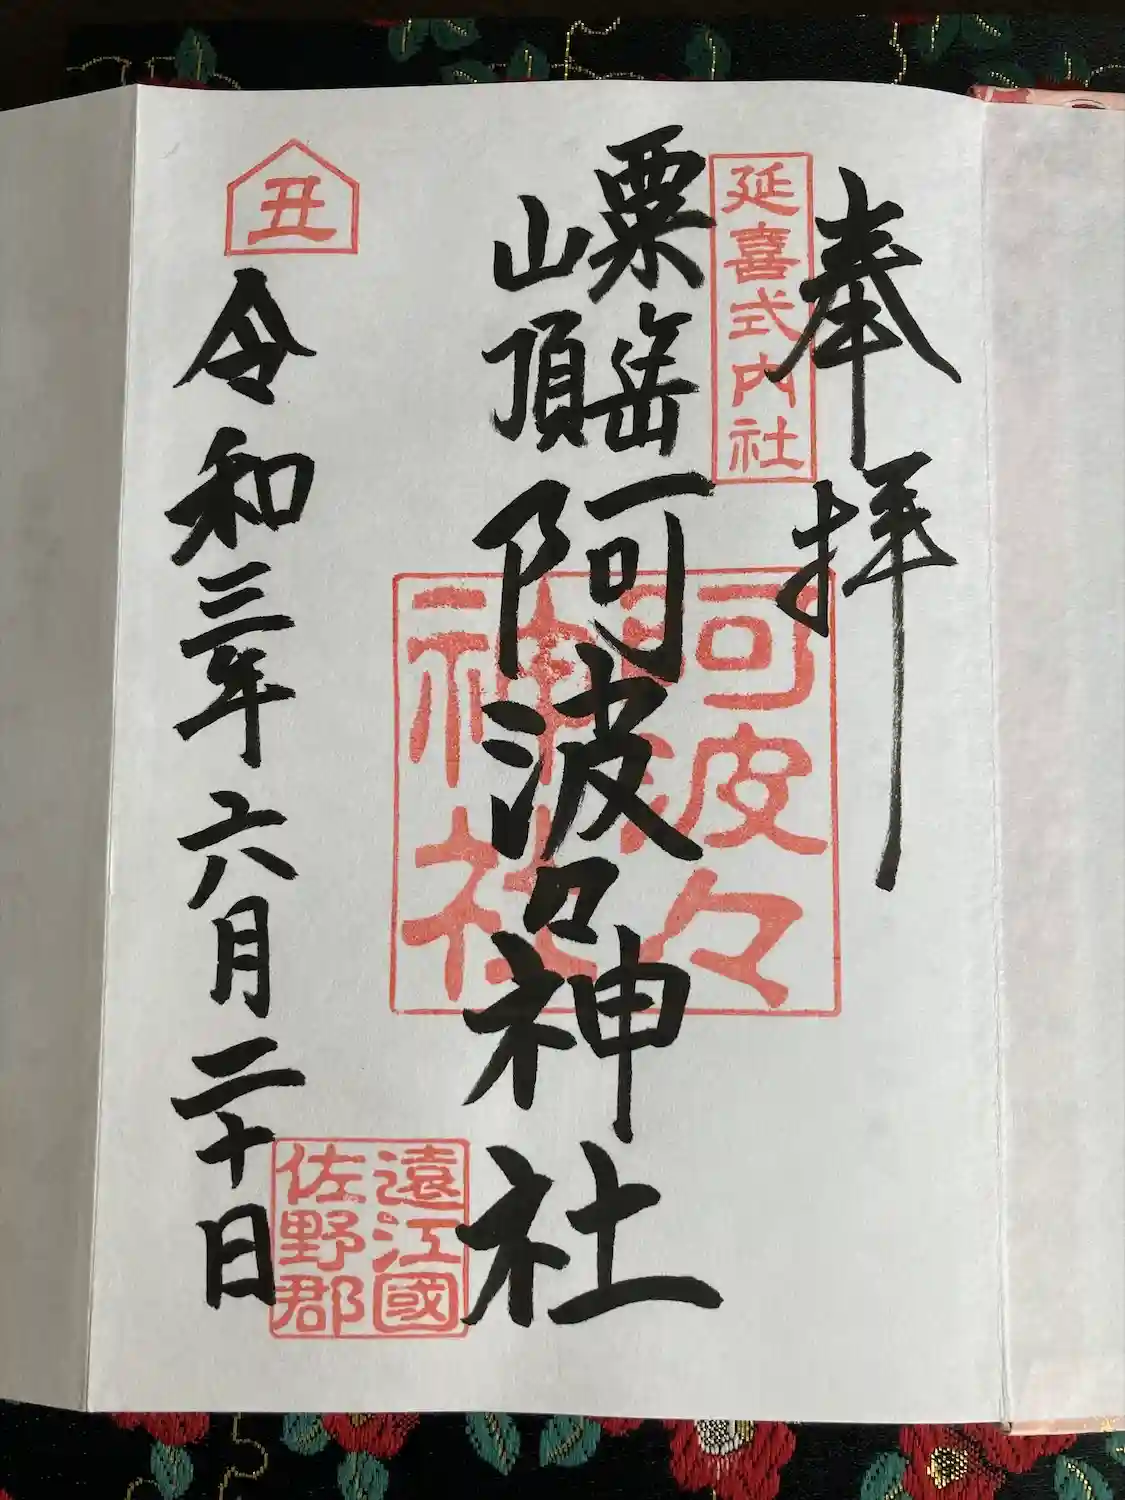 奉拝
延喜式内社
粟岳
山頂
阿波々神社
阿波々
神社
丑
令和三年六月二十日
遠江國
佐野郡